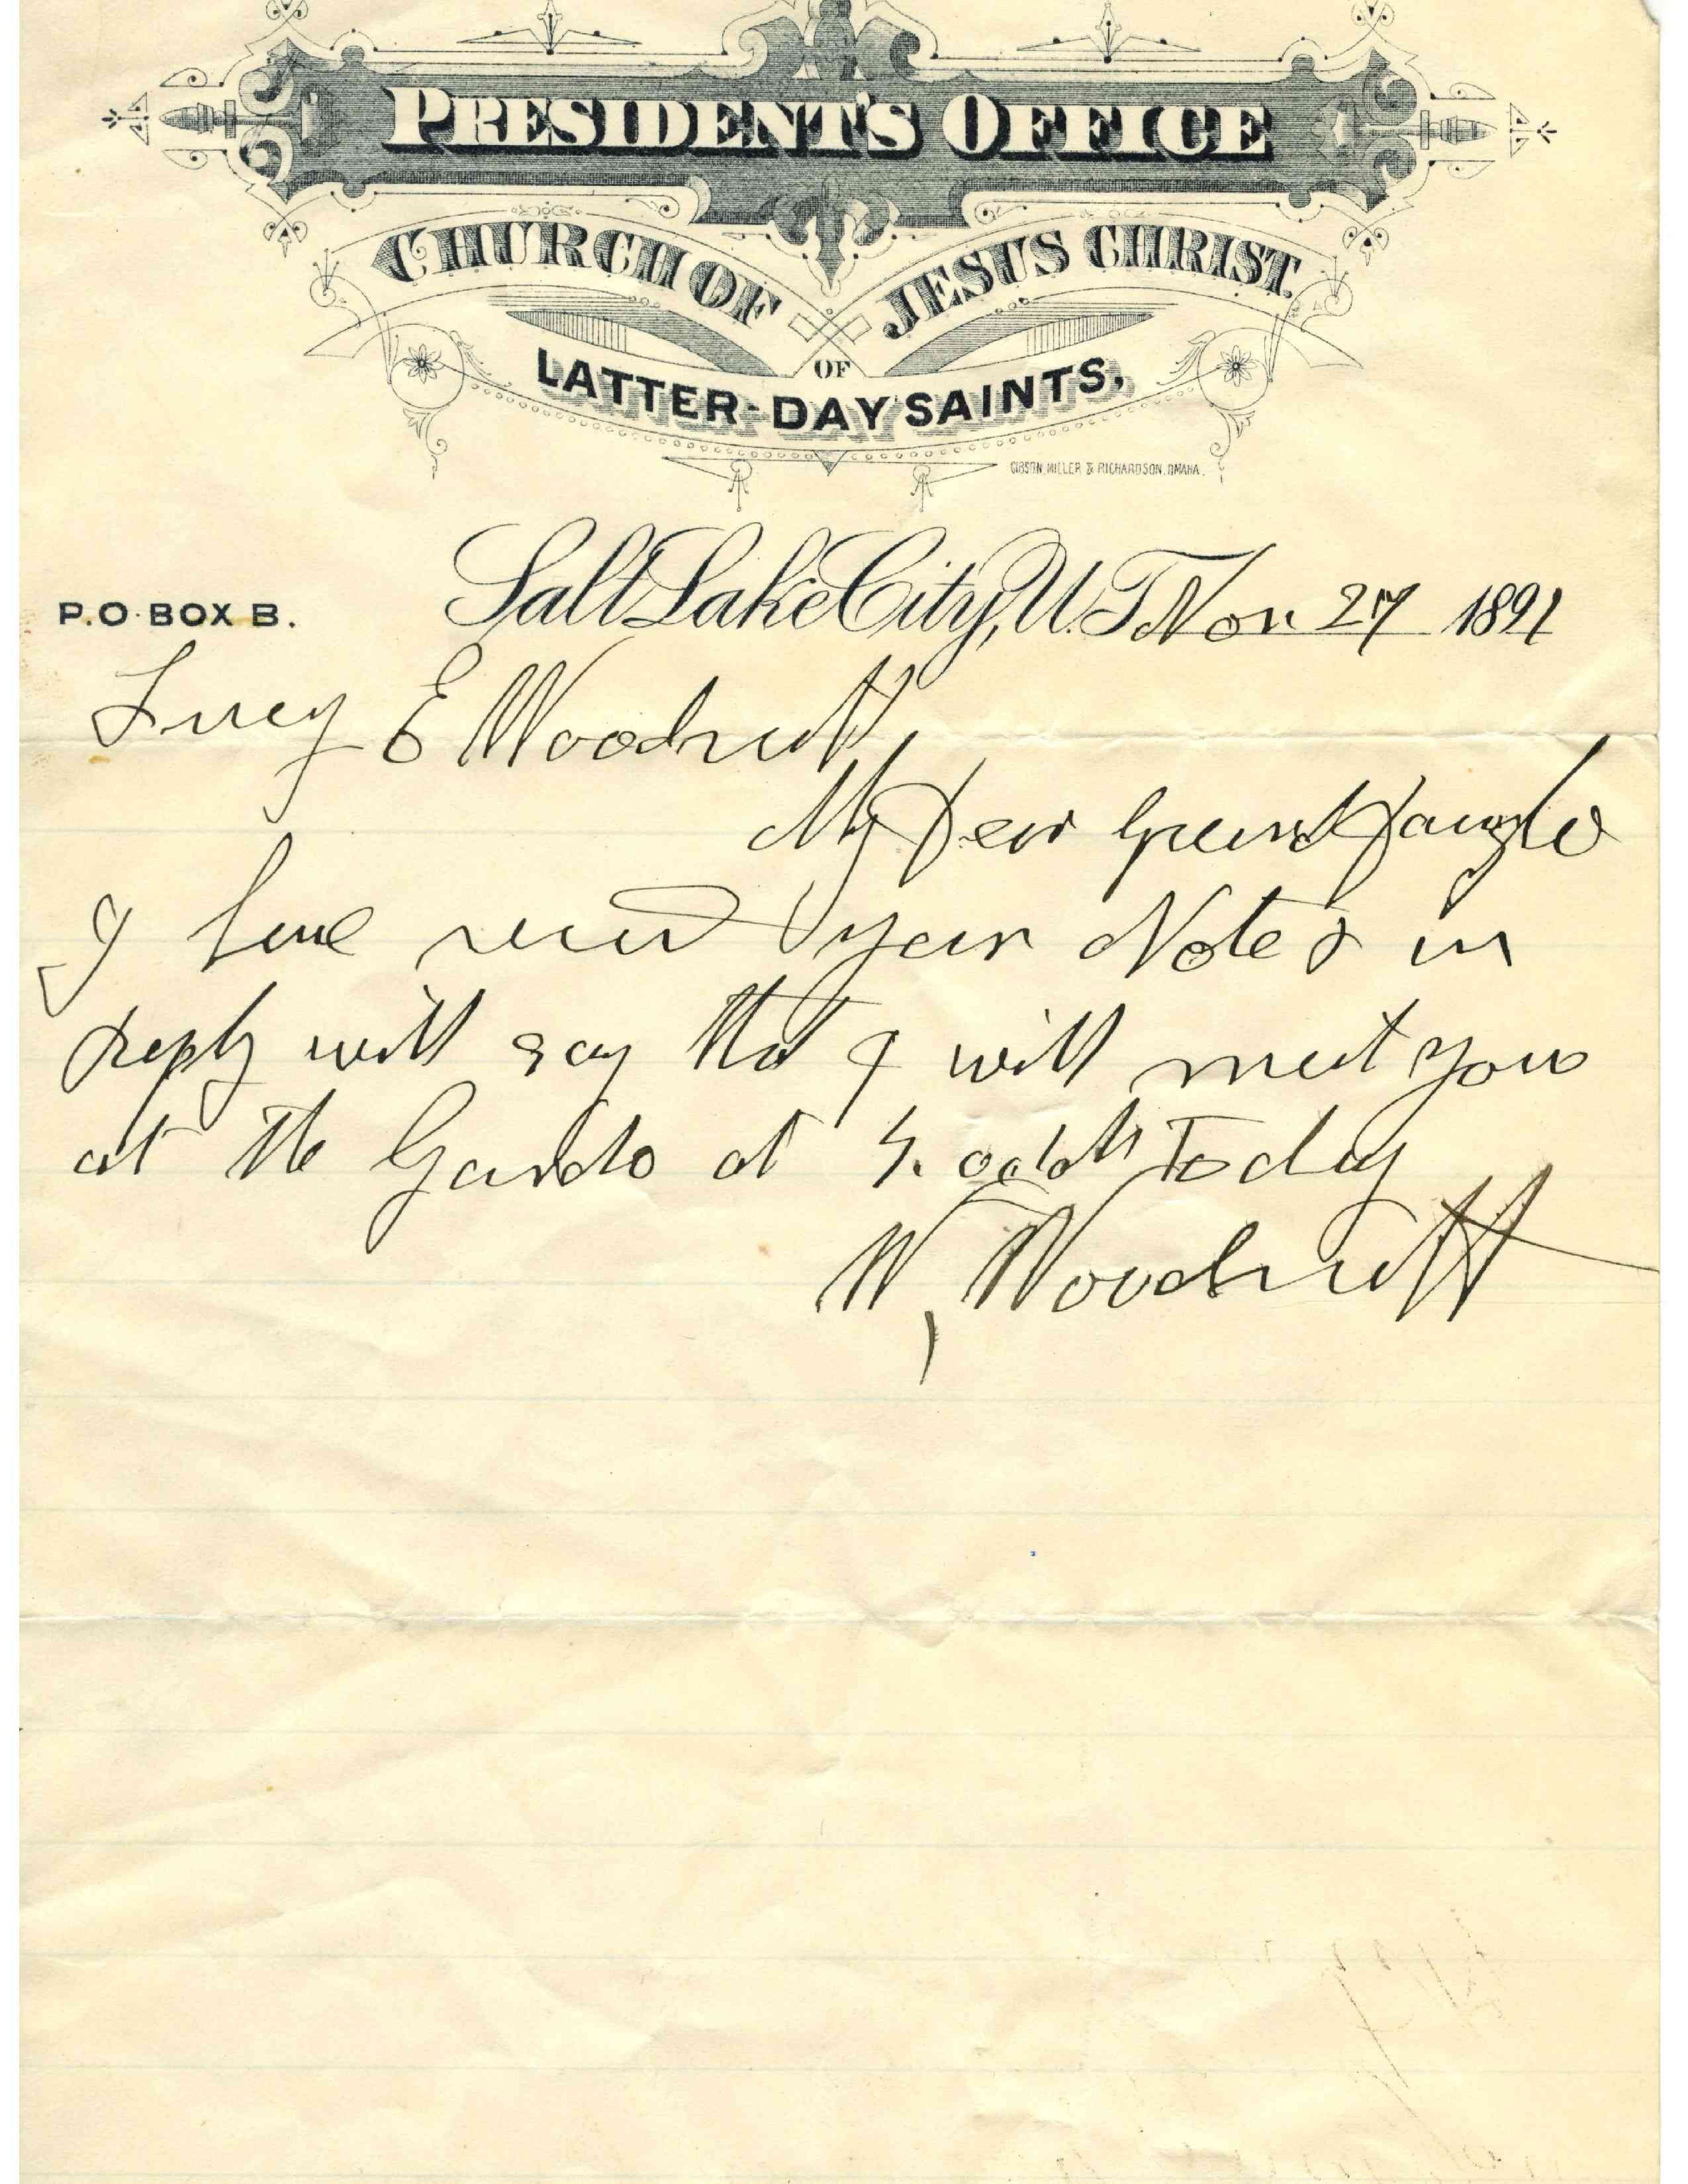 PRESIDENT'S OFFICE
CHURCH OF JESUS CHRIST
OF
LATTER-DAY SAINTS,
GIBSON, MILLER & RICHARDSON, OMAHA.
P.O. BOX B.
Salt Lake City, U.T. Nov. 27 1891
Lucy E Woodruff
My Dear Grand Daughter
I have your Note & in
reply will say that I will meet you
at the Gardo at oclok Today
W. Woodruff